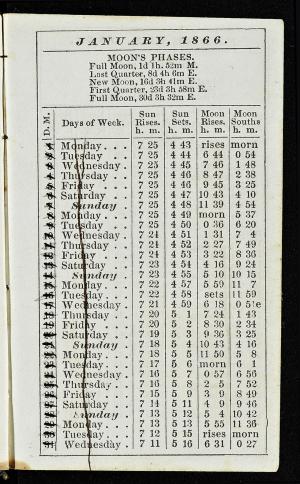 JANUARY, 1866.
MOON'S PHASES.
Full Moon, 1d 1h. 52m M.
Last Quarter, 8d 4h 6m E.
New Moon, 16d 3h 41m E.
First Quarter, 23d 3h 58m E.
Full Moon, 30d 3h 32m E.
D. M. Days of Week. Sun Rises. h. m. Sun Sets. h. m. Moon Rises. h. m. Moon Souths h. m.
Monday . . . 7 25 4 43 rises morn
Tuesday . . . 7 25 4 44 6 44 0 54
Wednesday . 7 25 4 45 7 46 1 48
Thursday . . 7 25 4 46 8 47 2 38
Friday . . . 7 25 4 46 9 45 3 25
Saturday . . 7 25 4 47 10 43 4 10
Sunday . 7 25 4 48 11 39 4 54
Monday . . . 7 25 4 49 morn 5 37
Tuesday . . 7 25 4 50 0 36 6 20
Wednesday . 7 24 4 51 1 31 7 4
Thursday . . 7 24 4 52 2 27 7 49
Friday . . . 7 24 4 53 3 22 8 36
Saturday . . 7 23 4 54 4 16 9 24
Sunday . 7 23 4 55 5 10 10 15
Monday . . . 7 22 4 57 5 59 11 7
Tuesday . . . 7 22 4 58 sets 11 59
Wednesday . 7 21 4 59 6 18
Thursday . . 7 20 5 1 7 24 1 43
Friday . . . 7 20 5 2 8 30 2 34
Saturday . . 7 19 5 3 9 36 3 25
Sunday . 7 18 5 4 10 43 4 16
Monday . . . 7 18 5 5 11 50 5 8
Tuesday . . . 7 17 5 6 morn 6 1
Wednesday . 7 16 5 7 0 57 6 56
Thursday . . 7 16 5 8 2 5 7 52
Friday . . . 7 15 5 9 3 9 8 49
Saturday . . 7 14 5 11 4 9 9 46
Sunday . 7 13 5 12 5 4 10 42
Monday . . 7 13 5 13 5 55 11 36
Tuesday . . . 7 12 5 15 rises morn
Wednesday . 7 11 5 16 6 31 0 27